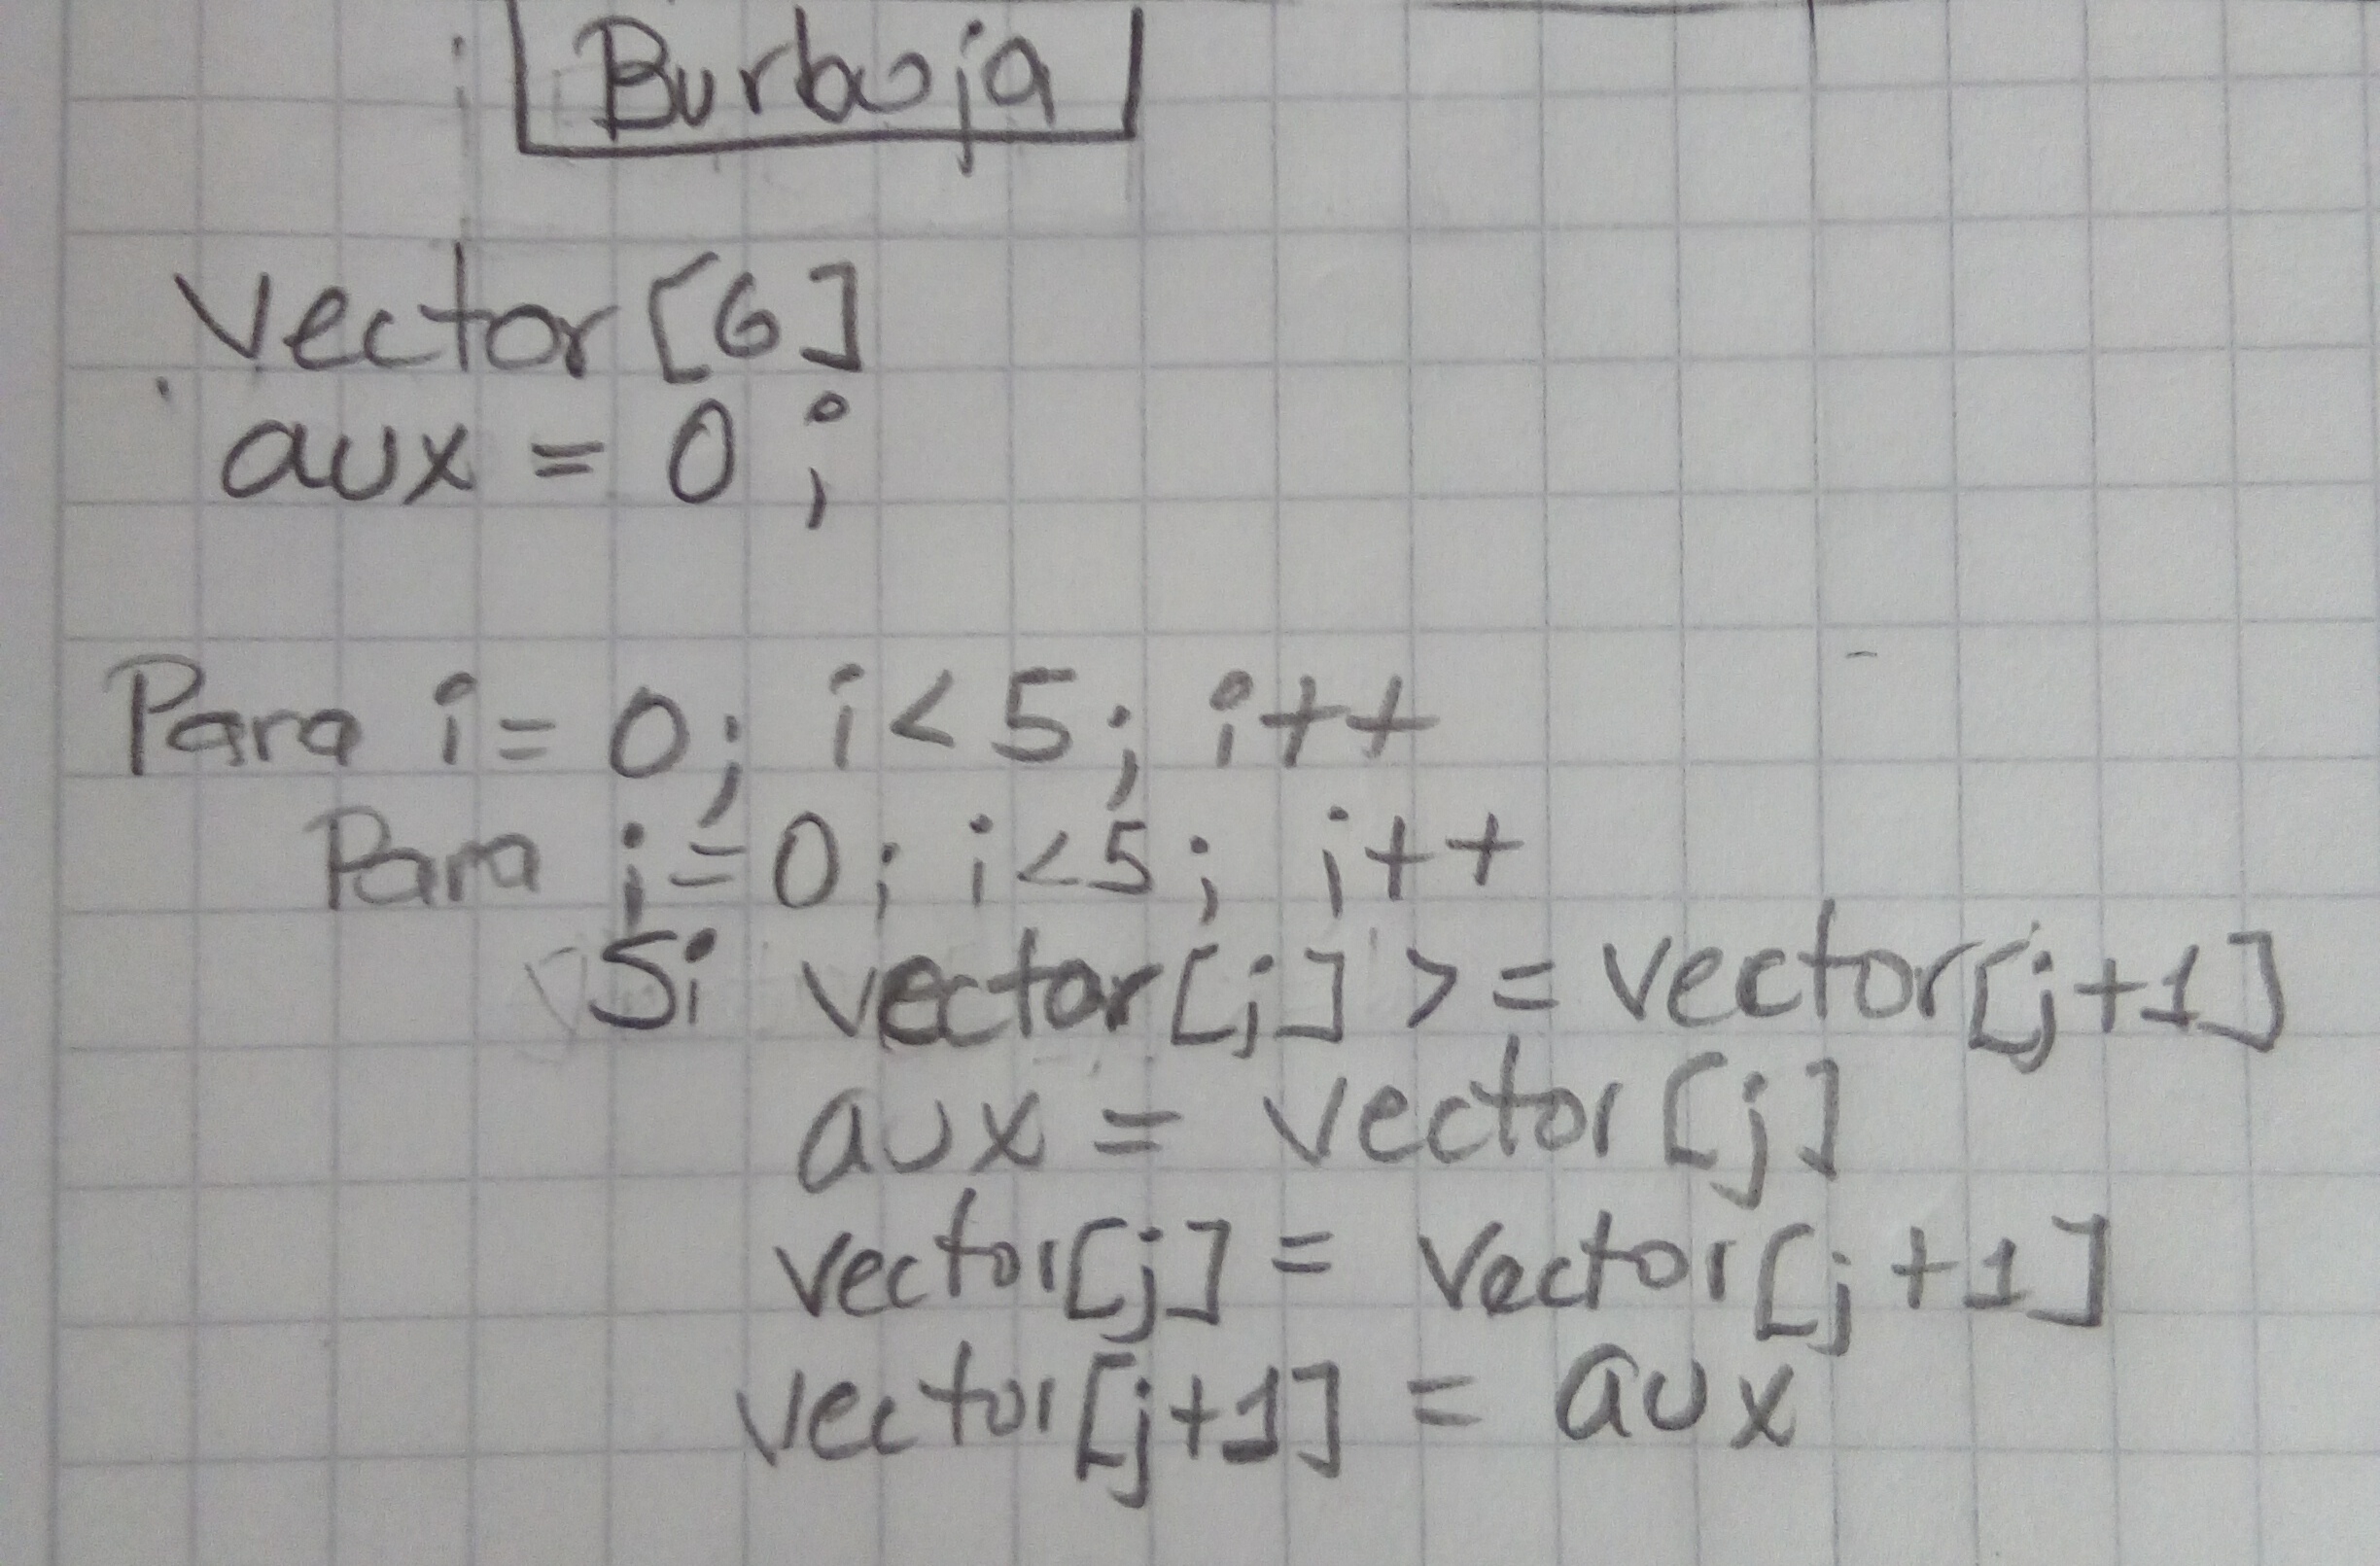 Burbuja
vector[6]
aux = 0;
Para i = 0; i < 5; i++
Para j = 0; i < 5; j++
Si vector[j] >= vector[j+1]
aux = vector[j]
vector[j] = vector[j+1]
vector[j+1] = aux